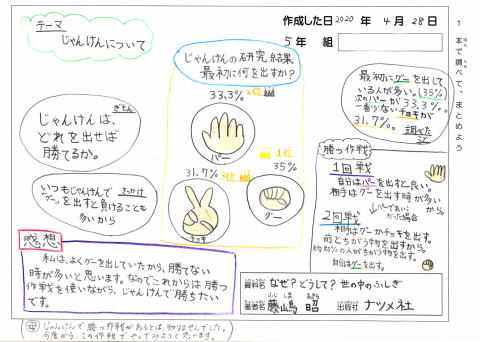 作成した日 2020 年 4 月 28 日
5 年 組
1 本で調べて、まとめよう
テーマ
じゃんけんについて
ぎもん
じゃんけんは、
どれを出せば
勝てるか。
きっかけ
いつもじゃんけんで
グーを出すと負けることも
多いから
じゃんけんの研究結果
最初に何を出すか?
33.3% 2位
パー
31.7% 3位
チョキ
1位
35%
グー
最初にグーを出して
いる人が多い。(35%)
次のパーが33.3%。
一番少ないチョキが
31.7%。
調べたこと
勝つ作戦
1回戦
自分はパーを出すと良い。
相手はグーを出す時が多いから。
パーであいこだった場合
2回戦
相手はグーかチョキを出す。
前とちがう物を出すから。
約80%の人がちがう物を出す。
自分はグーを出す。
感想
私は、よくグーを出していたから、勝てない
時が多いと思います。なのでこれからは勝つ
作戦を使いながら、じゃんけんで勝ちたい
です。
資料名 なぜ?どうして? 世の中のふしぎ
著者名 藤嶋 昭 出版社 ナツメ社
ふじ しま あきら
母 じゃんけんで勝つ作戦があるとは、知りませんでした。
今度から、この作戦でやってみようと思います。